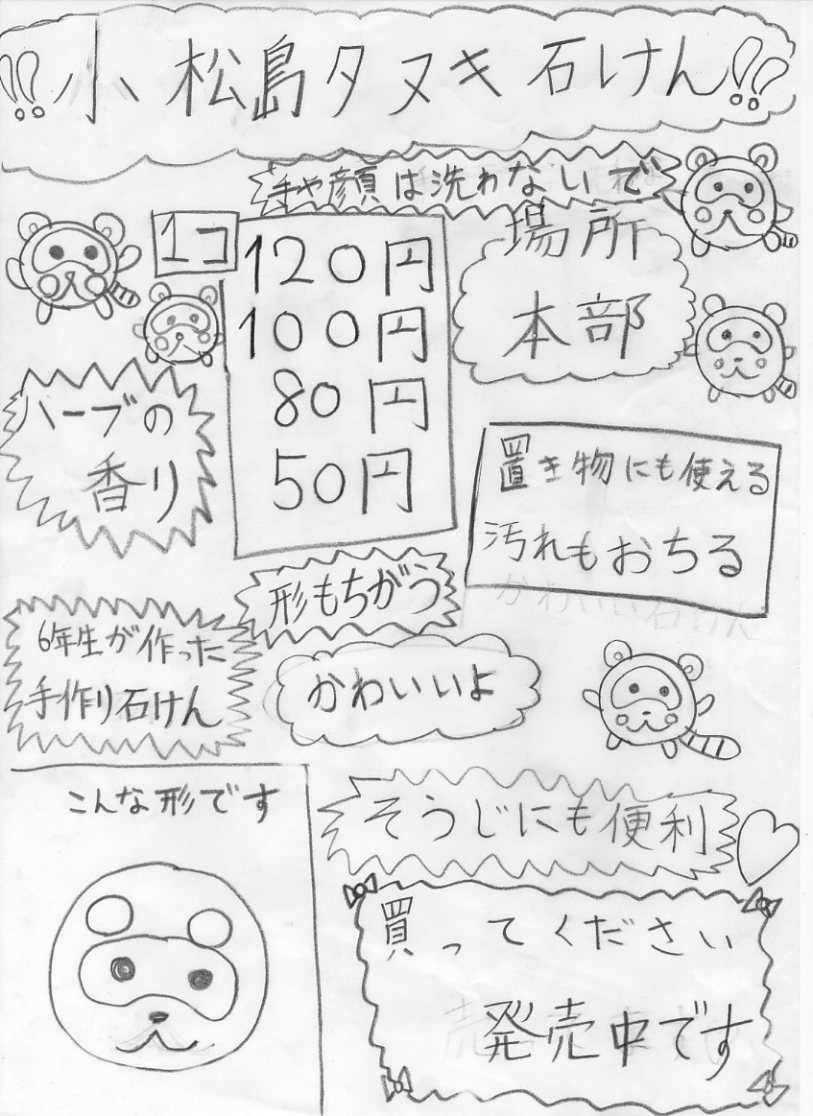 !!小松島タヌキ石けん!!
手や顔は洗わないで
1コ
120円
100円
80円
50円
場所
本部
ハーブの
香り
置き物にも使える
汚れもおちる
形もちがう
6年生が作った
手作り石けん
かわいいよ
こんな形です
そうじにも便利
買ってください
発売中です